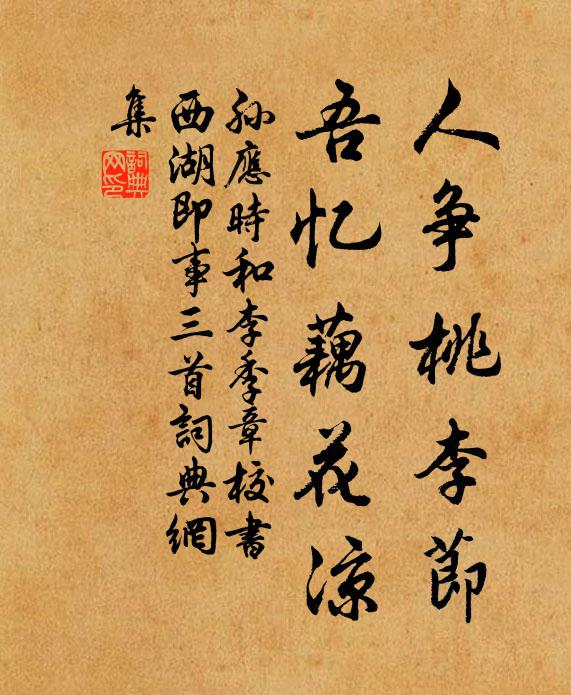 人争桃李節
吾忆藕花凉
孙應時和李季章校書
西湖即事三首詞典網
集
詞典网印